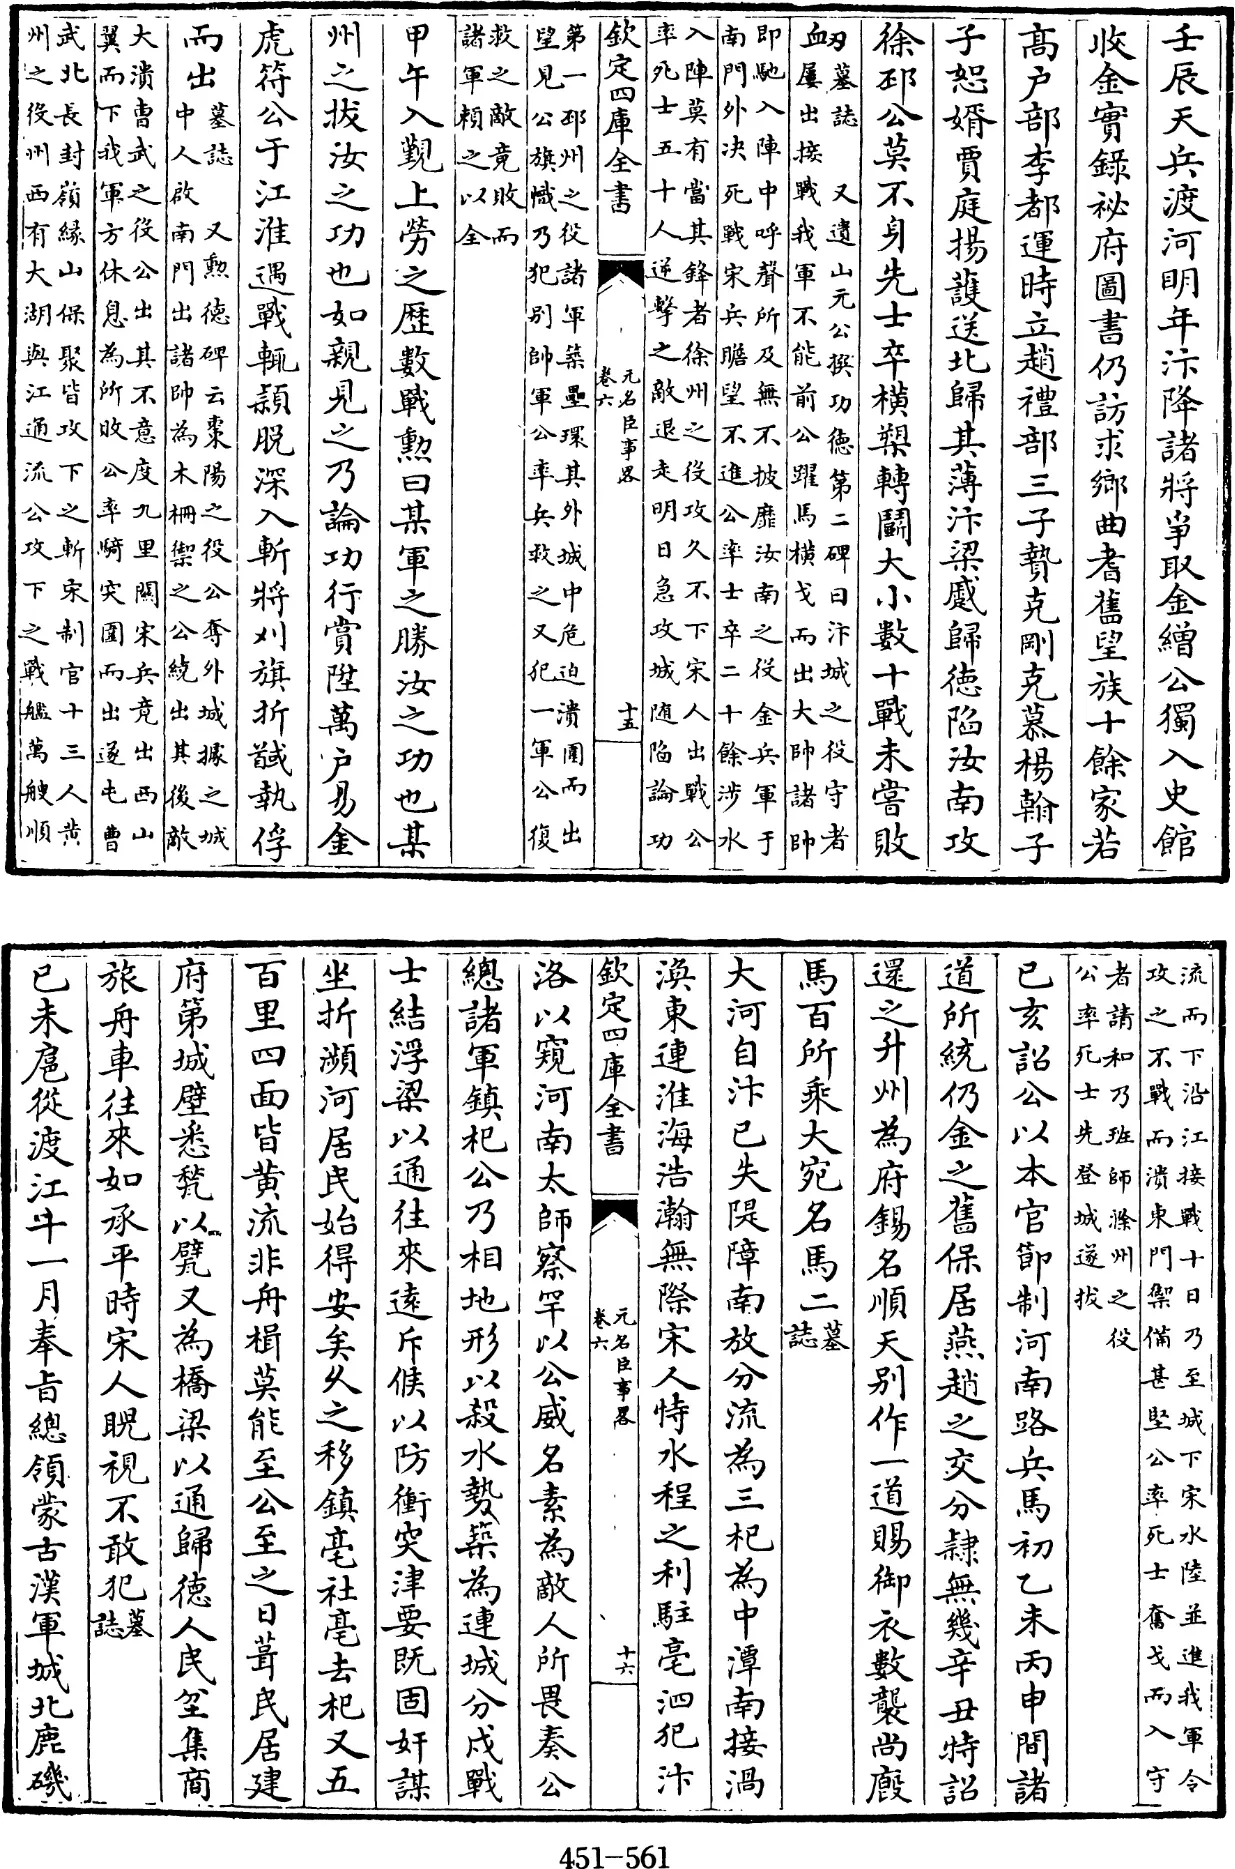 壬辰天兵渡河明年汴降諸將爭取金繒公獨入史館
收金實錄祕府圖書仍訪求鄉曲耆舊望族十餘家若
髙户部李都運時立趙禮部三子贄克剛克慕楊翰子
子恕婿賈庭揚護送北歸其薄汴梁蹙歸徳陷汝南攻
徐邳公莫不身先士卒横槊轉鬭大小數十戰未嘗敗
衂
墓誌 又遺山元公撰功徳第二碑曰汴城之役守者
屢出接戰我軍不能前公躍馬横戈而出大帥諸帥
即馳入陣中呼聲所及無不披靡汝南之役金兵軍于
南門外决死戰宋兵膽望不進公率士卒二十餘涉水
入陣莫有當其鋒者徐州之役攻久不下宋人出戰公
率死士五十人逆擊之敵退走明日急攻城随陷論功
欽定四庫全書
元名臣事畧
卷六
十五
第一邳州之役諸軍築壘環其外城中危迫潰圍而出
望見公旗幟乃犯别帥軍公率兵救之又犯一軍公復
救之敵竟敗而
諸軍賴之以全
甲午入覲上勞之歴數戰勲曰某軍之勝汝之功也某
州之拔汝之功也如親見之乃論功行賞陞萬户易金
虎符公于江淮遇戰輒頴脱深入斬將刈旗折馘執俘
而出
墓誌 又勲徳碑云棗陽之役公奪外城據之城
中人啟南門出諸帥為木柵禦之公繞出其後敵
大潰曹武之役公出其不意度九里關宋兵竟出西山
翼而下我軍方休息為所敗公率騎突圍而出遂屯曹
武北長封嶺縁山保聚皆攻下之斬宋制官十三人黄
州之役州西有大湖與江通流公攻下之戰艦萬艘順
流而下沿江接戰十日乃至城下宋水陸並進我軍令
攻之不戰而潰東門禦備甚堅公率死士奮戈而入守
者請和乃班師滁州之役
公率死士先登城遂拔
已亥詔公以本官節制河南路兵馬初乙未丙申間諸
道所統仍金之舊保居燕趙之交分隷無幾辛丑特詔
還之升州為府錫名順天别作一道賜御衣數襲尚廐
馬百所乘大宛名馬二
墓
誌
大河自汴已失隄障南放分流為三杞為中潭南接渦
渙東連淮海浩瀚無際宋人恃水程之利駐亳泗犯汴
欽定四庫全書
元名臣事畧
卷六
十六
洛以窺河南太師察罕以公威名素為敵人所畏奏公
總諸軍鎮杞公乃相地形以殺水勢築為連城分戍戰
士結浮梁以通往來逺斥候以防衝突津要既固奸謀
坐折瀕河居民始得安矣久之移鎮亳社亳去杞又五
百里四面皆黄流非舟楫莫能至公至之日葺民居建
府第城壁悉甃以甓又為橋梁以通歸徳人民坌集商
旅舟車往來如承平時宋人睨視不敢犯
墓
誌
已未扈從渡江十一月奉㫖總領蒙古漢軍城北鹿磯
451-561